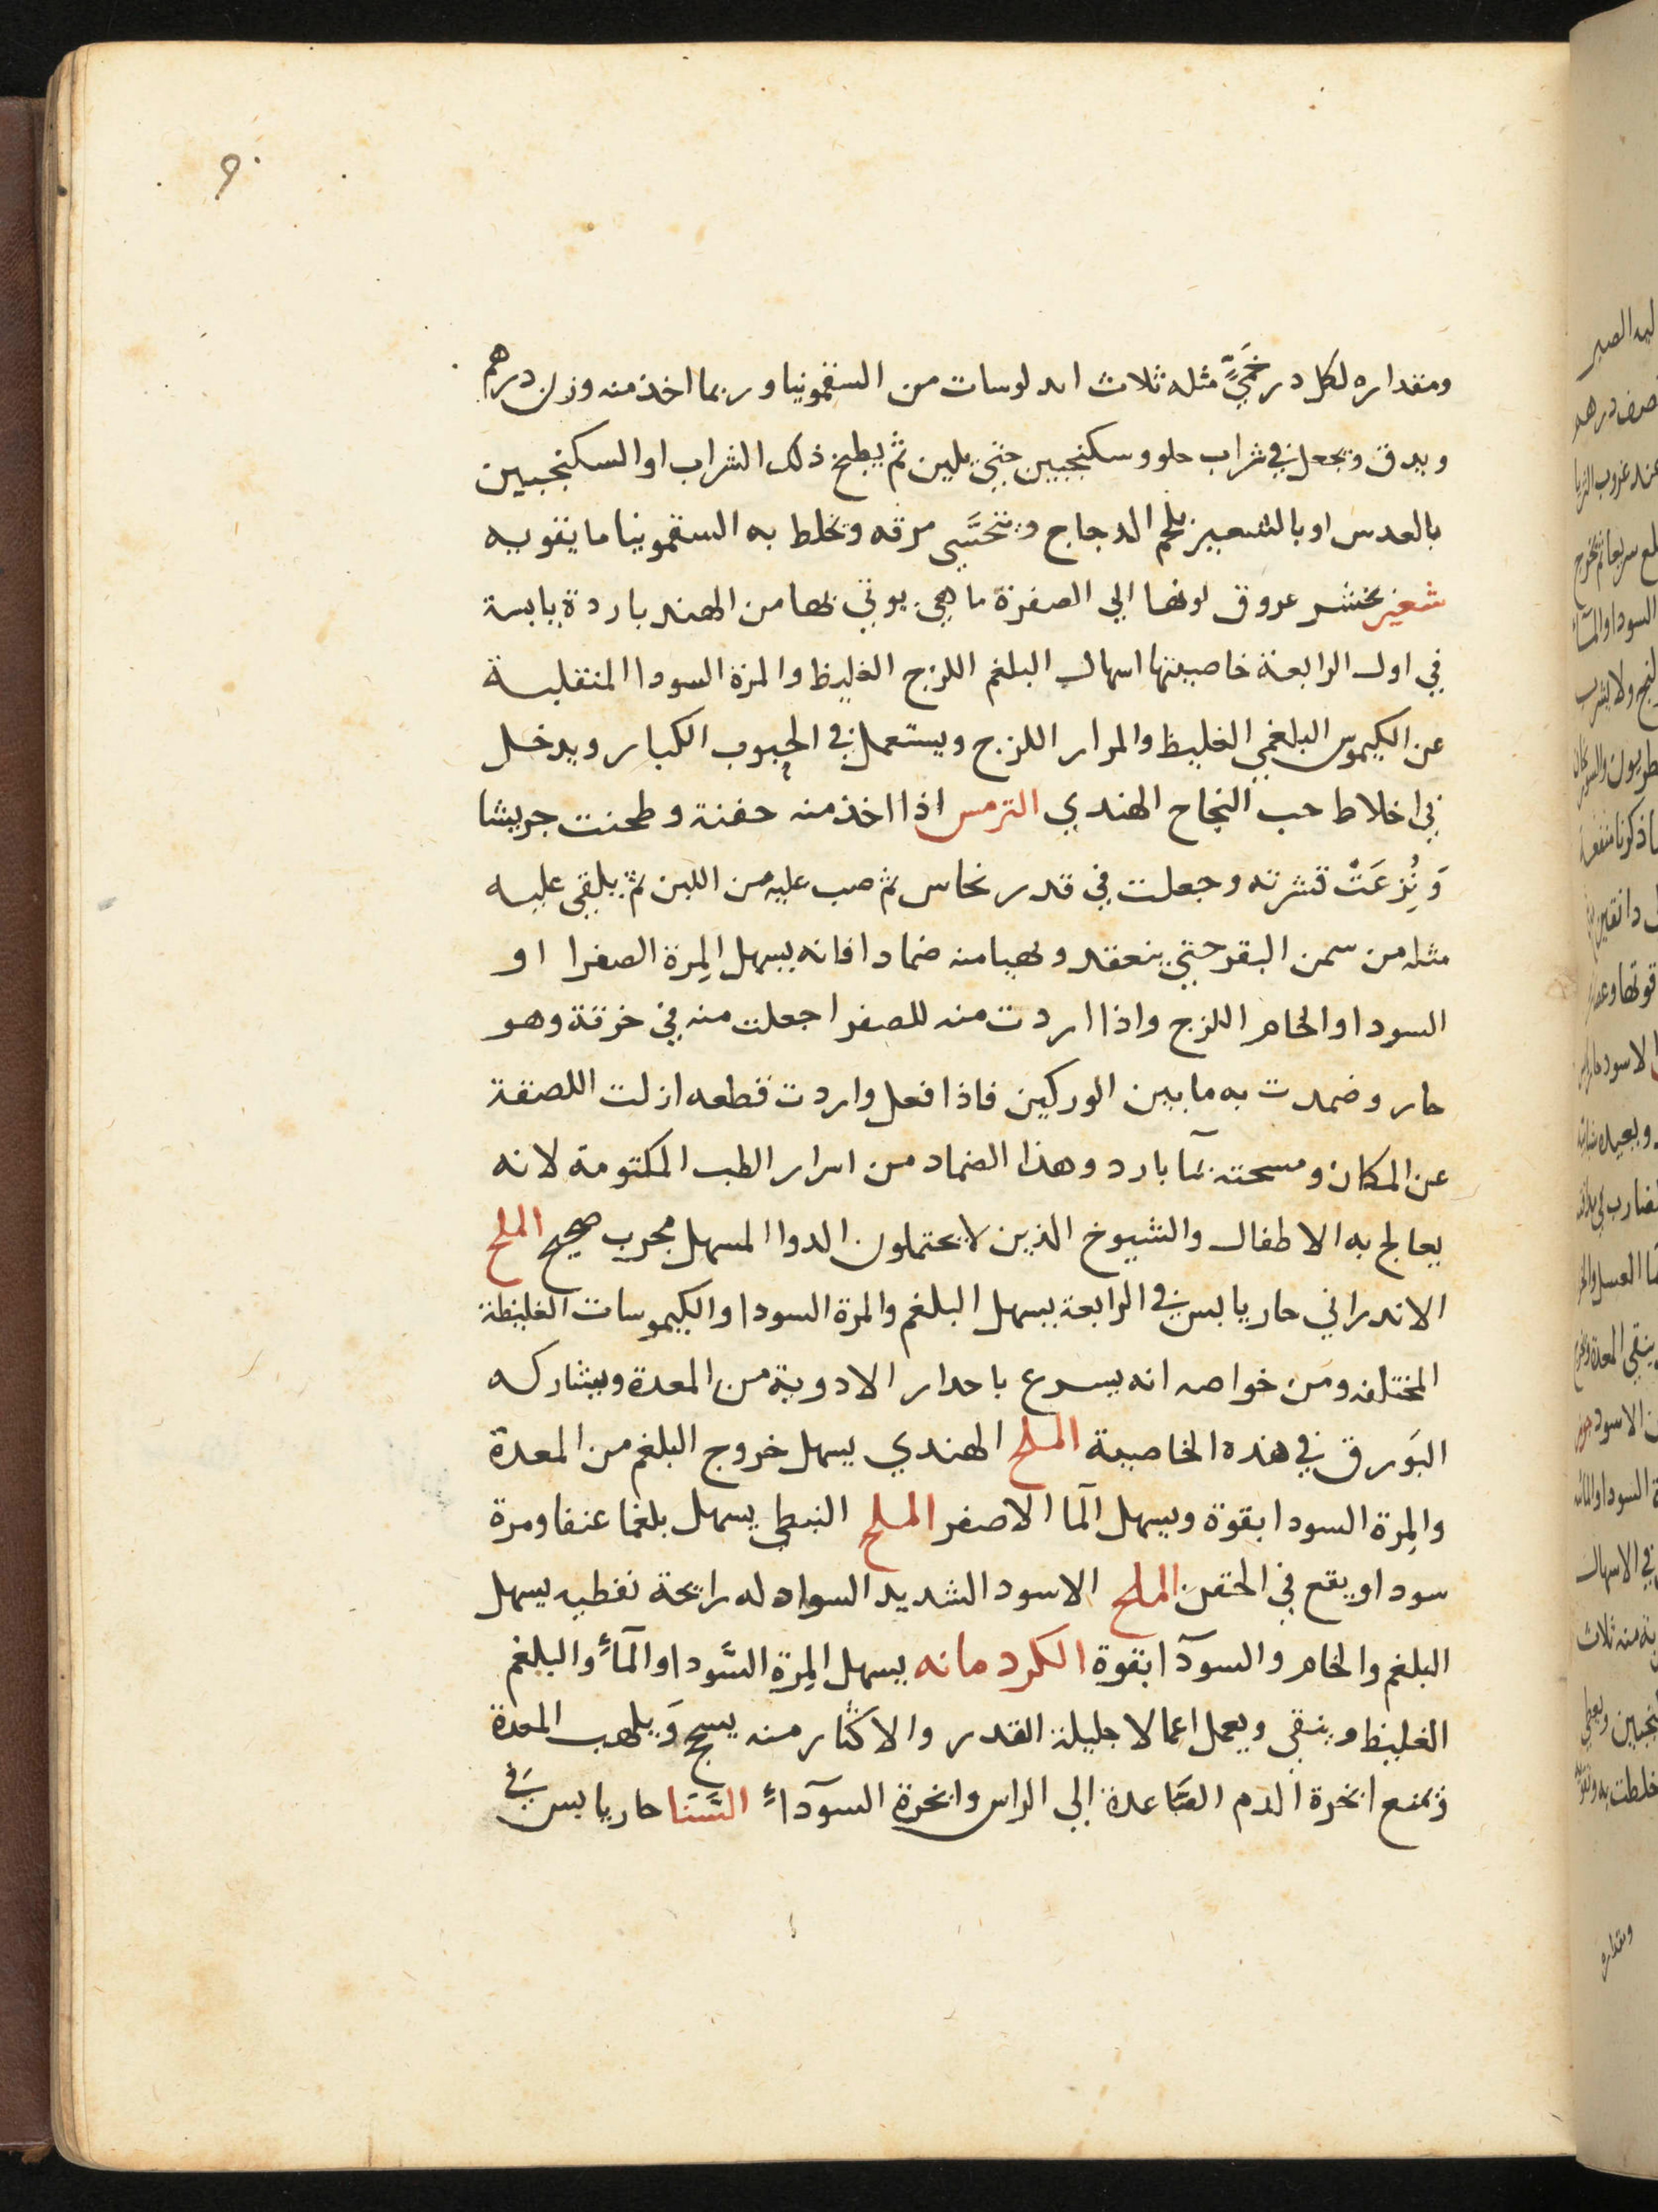 ومقداره لكل درخمي مثله ثلاث ابولوسات من السقمونيا وربما اخذ منه وزن درهم
ويدق ويجعل في شراب حلو وسكنجبين حتي يلين ثم يطبخ ذلك الشراب او السكنجبين
بالعدس او بالشعير بلحم الدجاج ويتحسَّي مرقه وتخلط به السقمونيا ما يقويه
عروق لونها الي الصفرة ما هي يوتي بها من الهند باردة يابسة
في اول الرابعة خاصيتها اسهال البلغم اللزج الغليظ والمرة السودا المنقلبة
عن الكيموس البلغمي الغليظ والمرار اللزج ويستعمل في الحبوب الكبار ويدخل
في اخلاط حب النجاح الهندي الترمس اذا اخذ منه حفنة وطحنت جريشا
وَنُزِعَتْ قشرته وجعلت في قدر نحاس ثم صب عليه من اللبن ثم يلقي عليه
مثله من سمن البقر حتي ينعقد ويهيا منه ضمادا فانه يسهل المِرة الصفرا او
السودا والخام اللزج واذا اردت منه للصفرا جعلت منه في خرقة وهو
حار وضمدت به ما بين الوركين فاذا فعل واردت قطعه ازلت اللصقة
عن المكان ومسحته بمآ بارد وهذا الضماد من اسرار الطب المكتومة لانه
يعالج به الاطفال والشيوخ الذين لا يحتملون الدوا المسهل مجرب صحيح الملح
الاندراني حار يابس في الرابعة يسهل البلغم والمرة السودا والكيموسات الغليظة
المختلفه ومن خواصه انه يسرع باحدار الادوية من المعدة ويشاركه
البَورق في هذه الخاصية الملح الهندي يسهل خروج البلغم من المعدة
والمِرة السودا بقوة ويسهل المآ الاصفر الملح النبطي يسهل بلغما عنفا ومرة
سودا ويقع في الحقن الملح الاسود الشديد السواد له رايحة نفطيه يسهل
البلغم والخام والسودآ بقوة الكردمانه يسهل المِرة السَّودا والمآء والبلغم
الغليظ وينقي ويعمل اعمالا جليلة القدر والاكثار منه يسحج وَيلهب المعدة
ويمنع ابخرة الدم الصَّاعدة الي الراس وابخرة السودآء السَّنَا حار يابس في